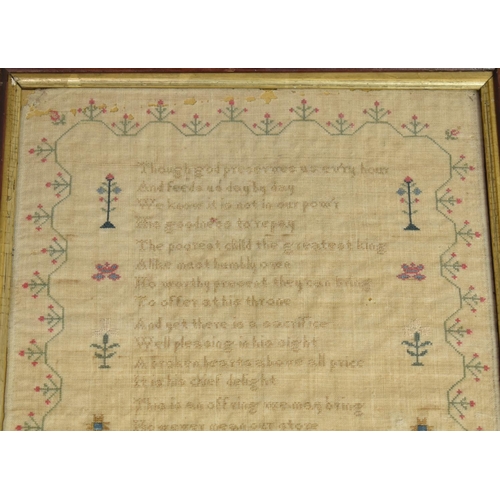 Though god preserves us ev'ry hour
And feeds us day by day
We know it is not in our pow'r
His goodness to repay
The poorest child the greatest king
Alike must humbly own
No worthy present they can bring
To offer at his throne
And yet there is a sacrifice
Well pleasing in his sight
A broken heart above all price
It is his chief delight
This is an off'ring we may bring
However mean our store